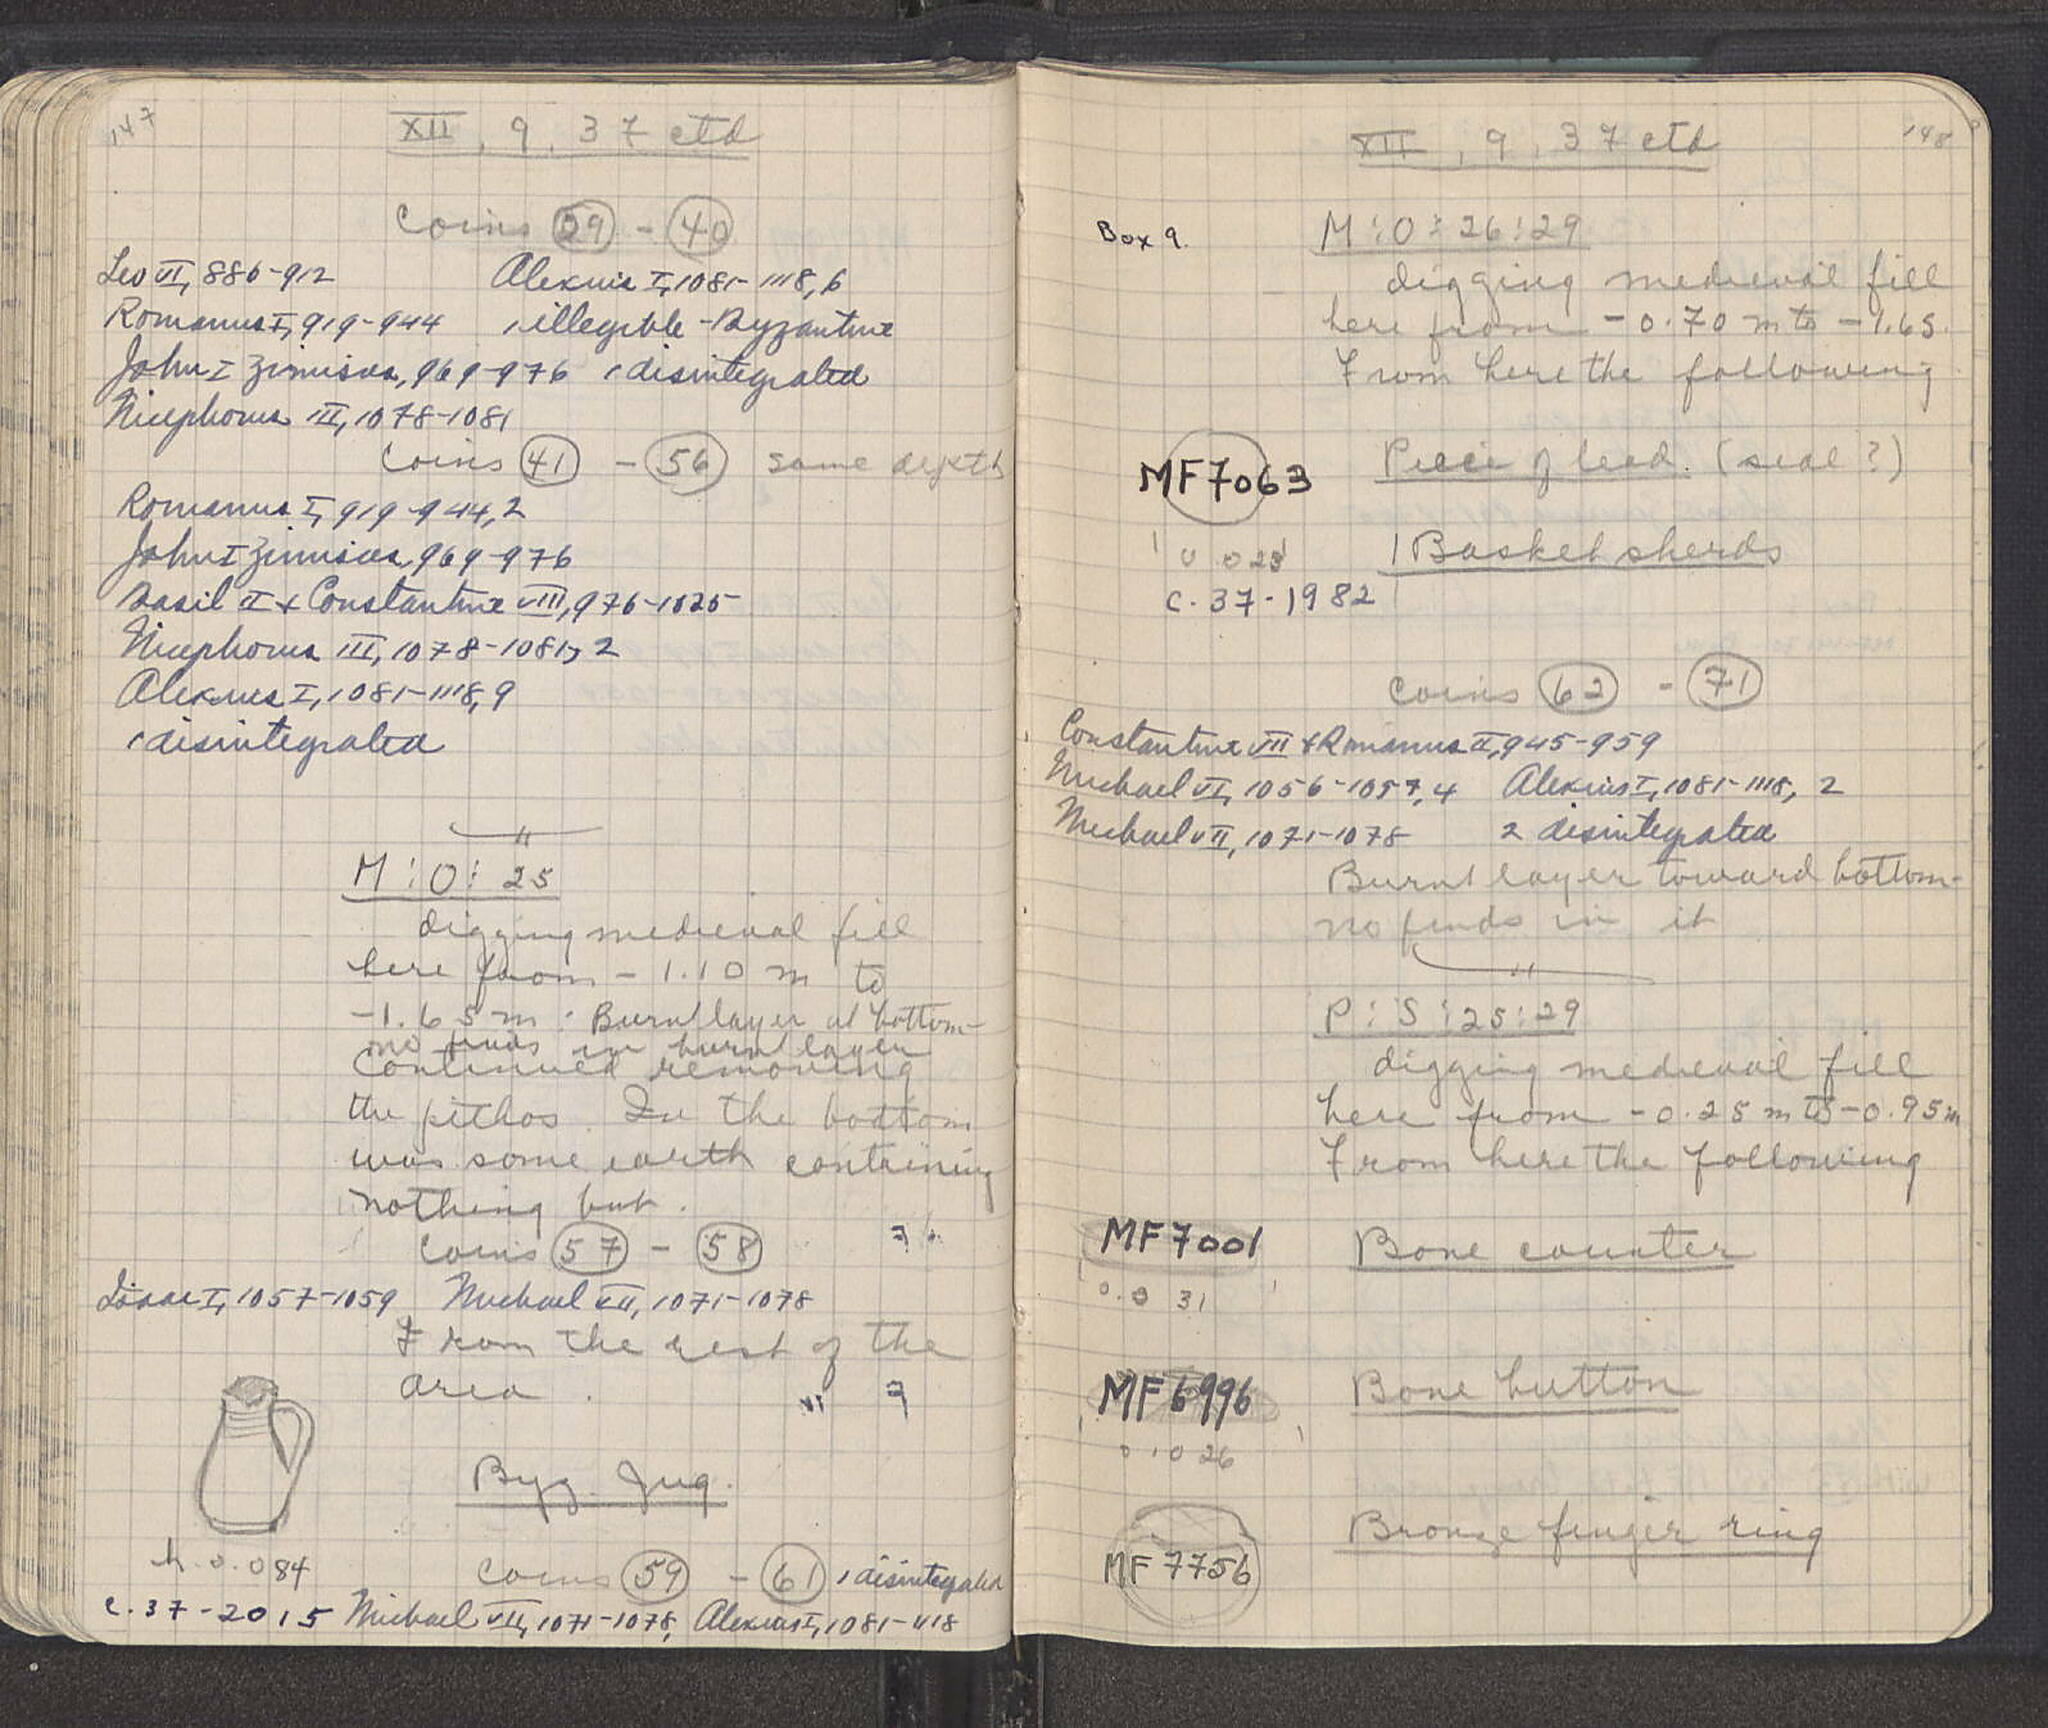 147
XII, 9, 37 ctd
Coins 29 - 40
Leo VI, 886-912 Alexius I, 1081-1118, 6
Romanus I, 919-944 1 illegible - Byzantine
John I Zimisces, 969-976 1 disintegrated
Nicephorus III, 1078-1081
Coins 41 - 56 same depth
Romanus I, 919-944, 2
John I Zimisces, 969-976
Basil II + Constantine VIII, 976-1025
Nicephorus III, 1078-1081, 2
Alexius I, 1081-1118, 9
1 disintegrated
M:O:25
digging medieval fill
here from -1.10 m to
-1.65 m. Burnt layer at bottom-
no finds in burnt layer
Continued removing
the pithos. In the bottom
was some earth containing
nothing but.
Coins 57 - 58
Isaac I, 1057-1059 Michael VII, 1071-1078
From the rest of the
area.
Byz. Jug.
h. 0.084
Coins 59 - 61 1 disintegrated
C.37-2015 Michael VII, 1071-1078, Alexius I, 1081-1118
148
XII, 9, 37 ctd
Box 9.
M:O:26:29
digging medieval fill
here from -0.70 m to -1.65.
From here the following
MF7063 Piece of lead. (seal?)
0.023 1 Basket sherds
C.37-1982
Coins 62 - 71
Constantine VII + Romanus II, 945-959
Michael VI, 1056-1057, 4 Alexius I, 1081-1118, 2
Michael VII, 1071-1078 2 disintegrated
Burnt layer toward bottom-
no finds in it
P:S:25:29
digging medieval fill
here from -0.25 m to -0.95 m
From here the following
MF7001 Bone counter
0.031
MF6996 Bone button
0.026
Bronze finger ring
MF7756